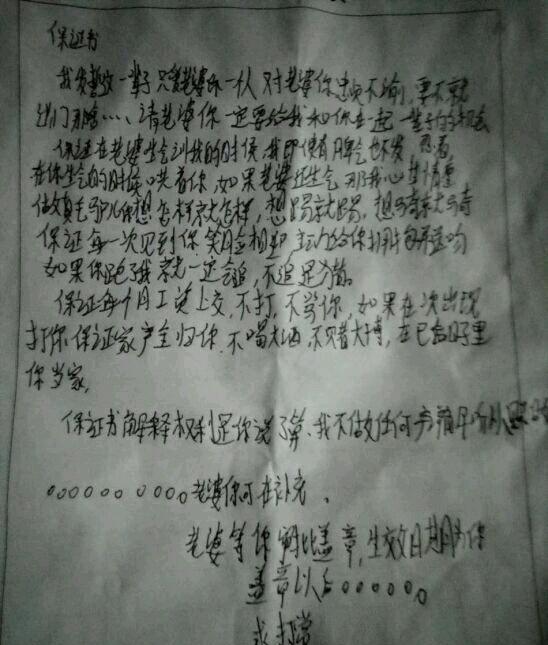 保证书
我发誓这一辈子只爱老婆你一人对老婆你忠贞不渝,要不就
出门那啥…、请老婆你一定要给我和你在一起一辈子的机会
保证在老婆生气训我的时候,我即使有脾气也不发 忍着
在你生气的时候哄着你,如果老婆还生气那我心甘情愿
做 你想怎样就怎样,想踢就踢,想
保证每一次见到你笑 相迎 主动给你拥抱
如果你跑了我就一定会追,不追是猫。
保证每个月工资上交,不打,不骂你,如果在次出现
打你保证家产全归你.不喝大酒,不赌大博,在已后日子里
你当家,
保证书解释权利是你说了算、我不做任何
。。。。。。。。。。老婆你可在补充、
老婆等你 盖章,生效日期为你
盖章以后。。。。。。